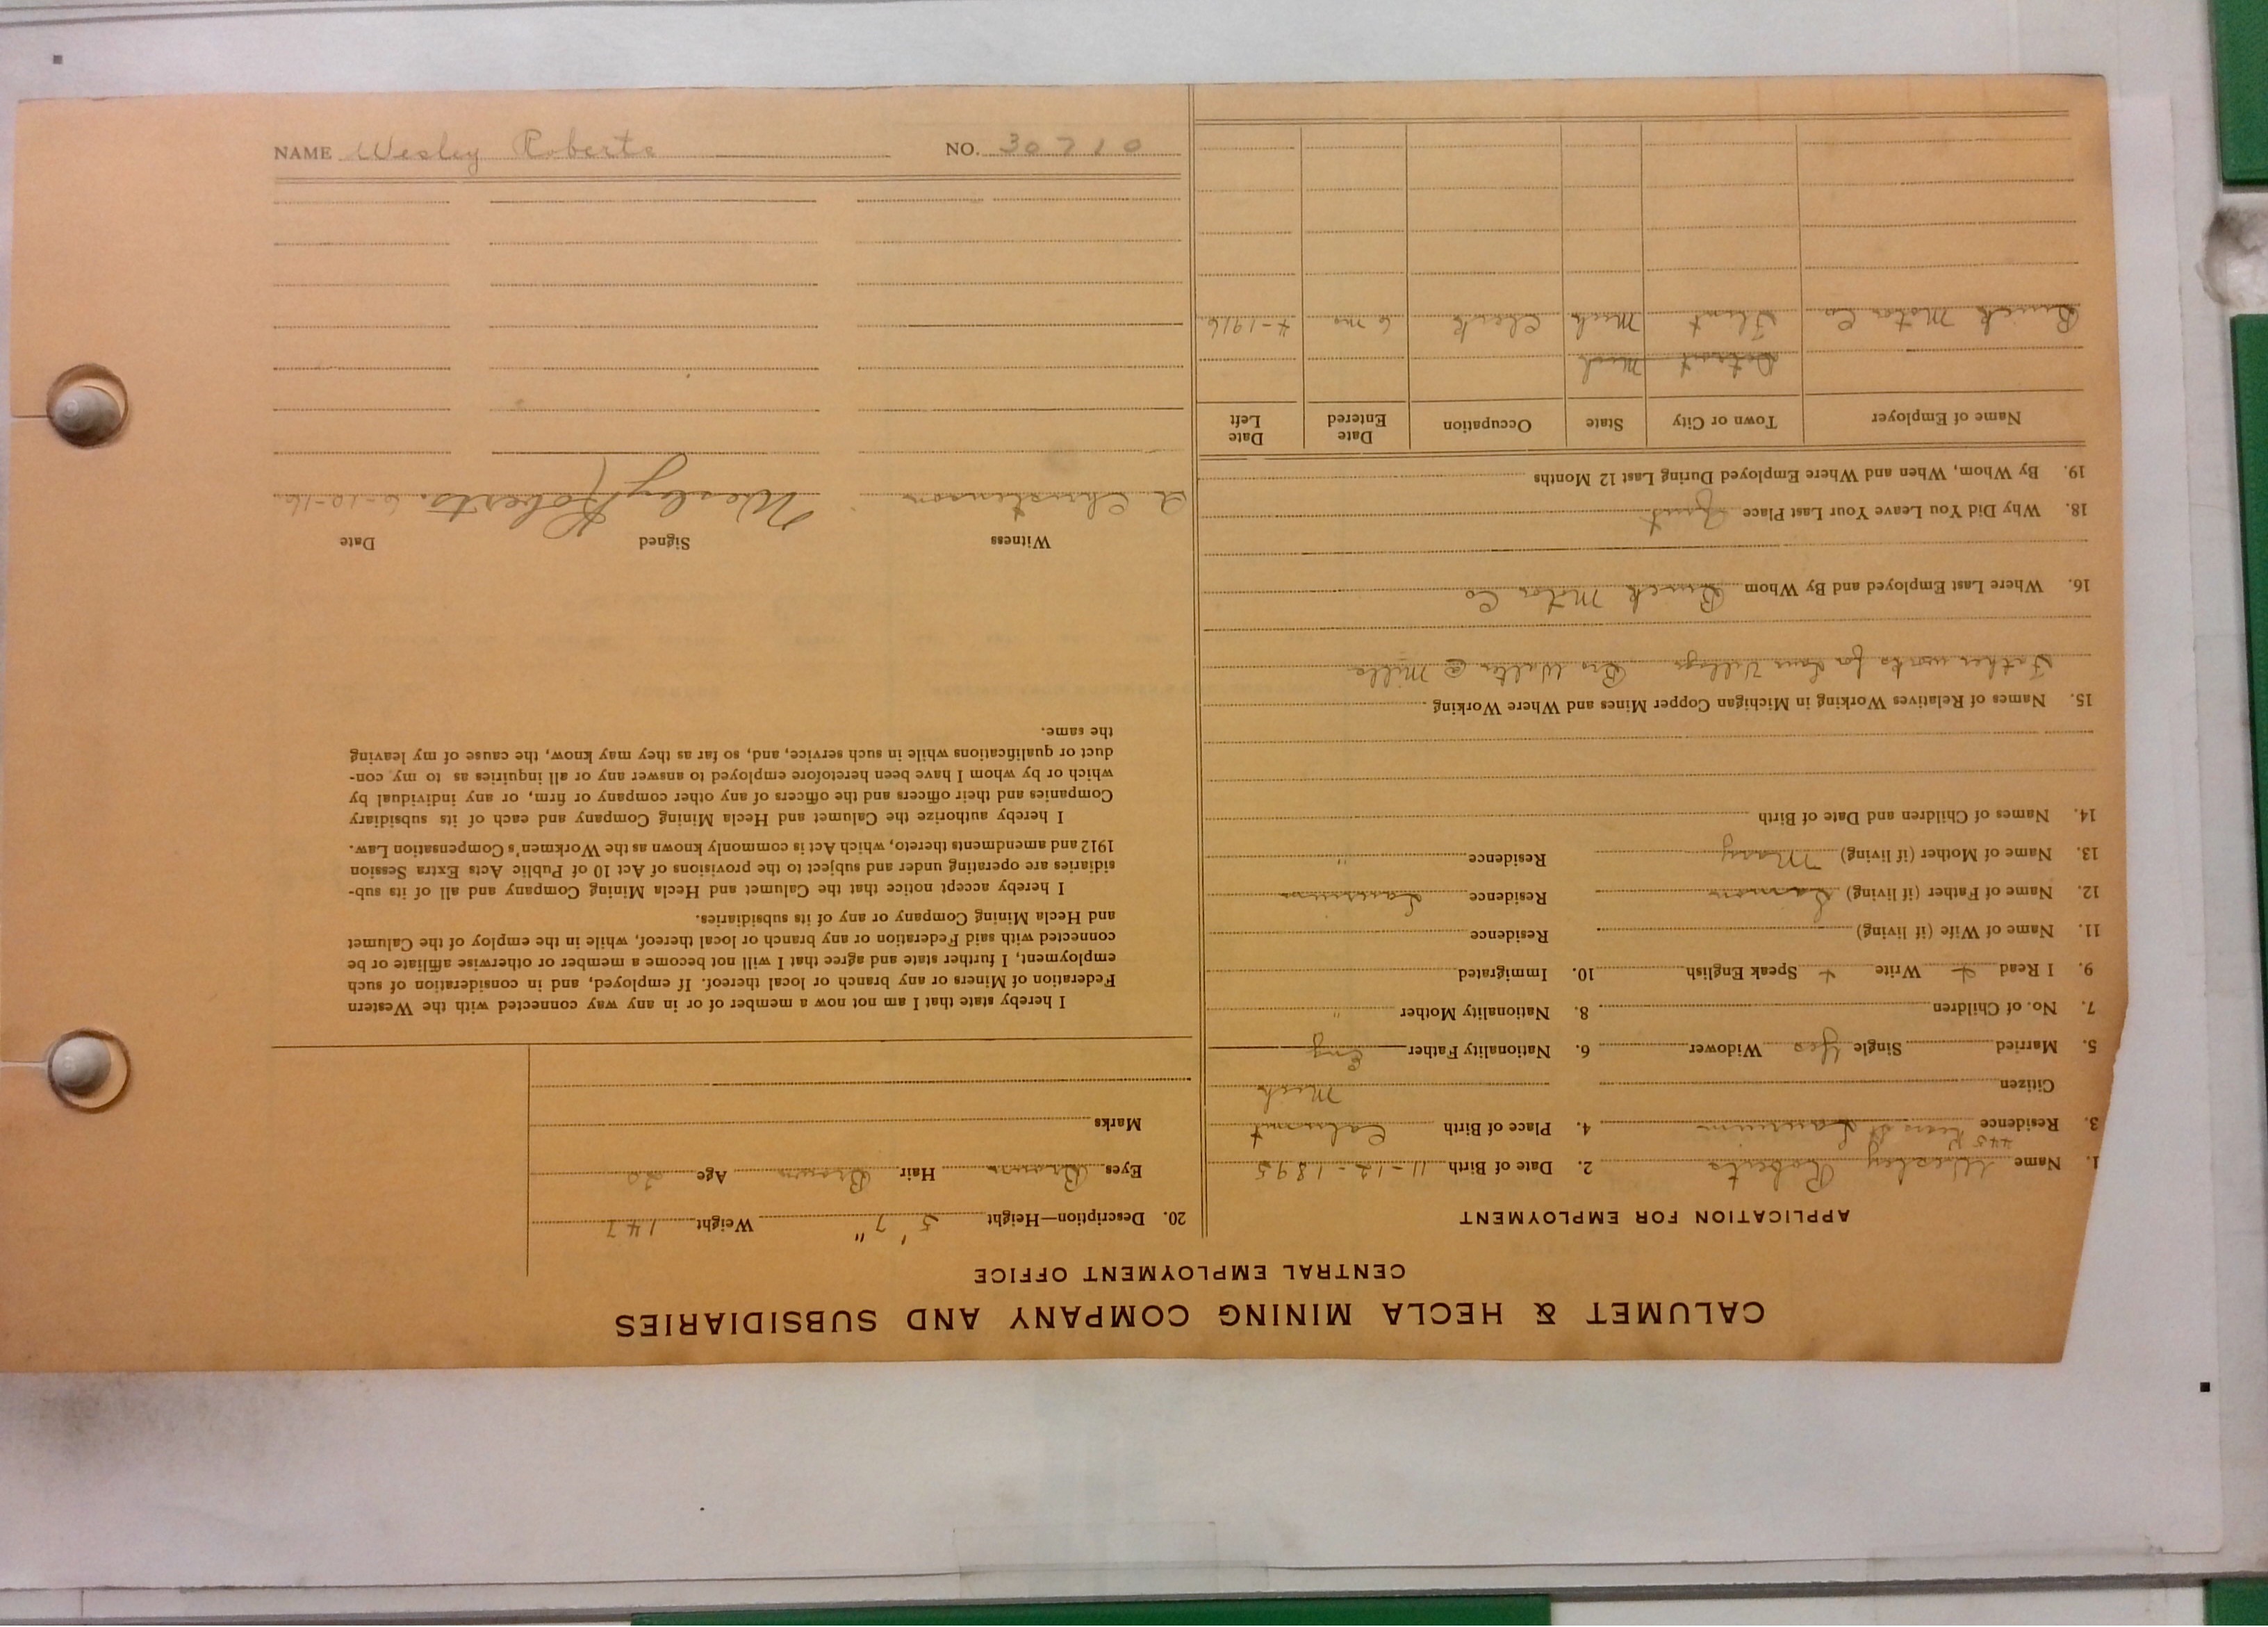 CALUMET & HECLA MINING COMPANY AND SUBSIDIARIES
CENTRAL EMPLOYMENT OFFICE
APPLICATION FOR EMPLOYMENT
1. Name Wesley Roberts 2. Date of Birth 11-12-1895
445 Kears St
3. Residence Laurium 4. Place of Birth Calumet
Citizen Mich
5. Married Single Yes Widower 6. Nationality Father Eng
7. No. of Children 8. Nationality Mother "
9. I Read + Write + Speak English 10. Immigrated
11. Name of Wife (if living) Residence
12. Name of Father (if living) Residence Laurium
13. Name of Mother (if living) Mary Residence "
14. Names of Children and Date of Birth
15. Names of Relatives Working in Michigan Copper Mines and Where Working
Father works for Laur Village Bro Walter @ Mills
16. Where Last Employed and By Whom Buick Motor Co
18. Why Did You Leave Your Last Place Quit
19. By Whom, When and Where Employed During Last 12 Months
Name of Employer Town or City State Occupation Date Entered Date Left
Detroit Mich
Buick Motor Co Flint Mich Clerk 6 mo 4-1916
20. Description—Height 5' 7" Weight 147
Eyes Brown Hair Brown Age 20
Marks
I hereby state that I am not now a member of or in any way connected with the Western
Federation of Miners or any branch or local thereof. If employed, and in consideration of such
employment, I further state and agree that I will not become a member or otherwise affiliate or be
connected with said Federation or any branch or local thereof, while in the employ of the Calumet
and Hecla Mining Company or any of its subsidiaries.
I hereby accept notice that the Calumet and Hecla Mining Company and all of its sub-
sidiaries are operating under and subject to the provisions of Act 10 of Public Acts Extra Session
1912 and amendments thereto, which Act is commonly known as the Workmen's Compensation Law.
I hereby authorize the Calumet and Hecla Mining Company and each of its subsidiary
Companies and their officers and the officers of any other company or firm, or any individual by
which or by whom I have been heretofore employed to answer any or all inquiries as to my con-
duct or qualifications while in such service, and, so far as they may know, the cause of my leaving
the same.
Witness Signed Date
A Christianson Wesley Roberts. 6-10-16
NAME Wesley Roberts NO. 30710